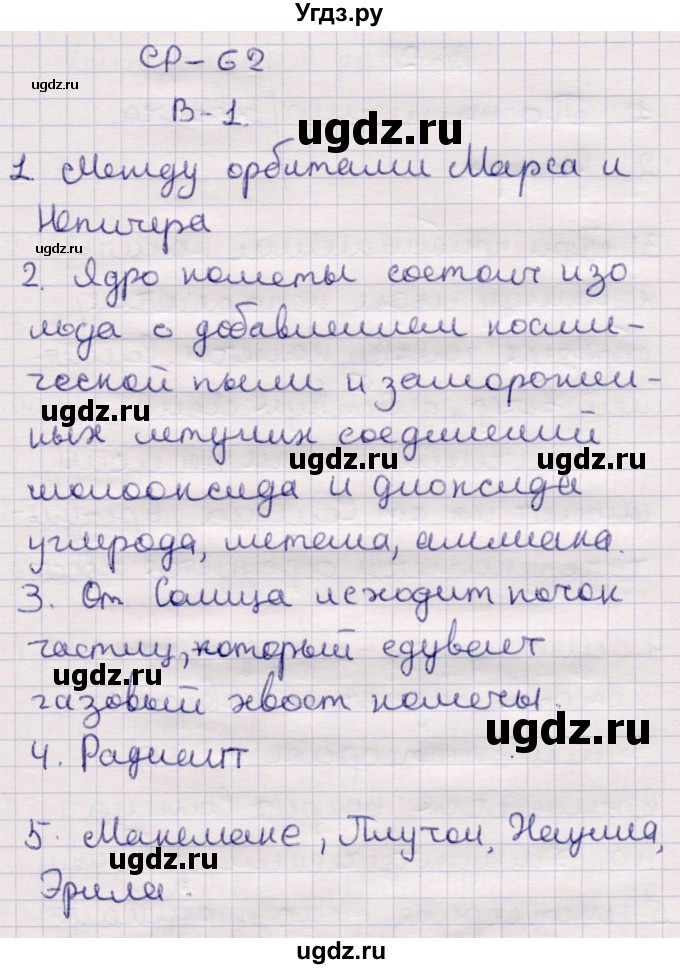 Угдз.ру
СР-62
ugdz.ru
В-1.
ugdz.ru
1. Между орбитами Марса и
Юпитера
ugdz.ru
2. Ядро кометы состоит изо
льда с добавлением косми-
ческой пыли и заморожен-
ugdz.ru
ных летучих соединений
ugdz.ru
ugdz.ru
монооксида и диоксида
углерода, метана, аммиака.
3. От Солнца исходит поток
частиц, который сдувает
ugdz.ru
газовый хвост кометы.
ugdz.ru
4. Радиант
5. Макемаке, Плутон, Хаумеа,
ugdz.ru
Эрида.
ugdz.ru